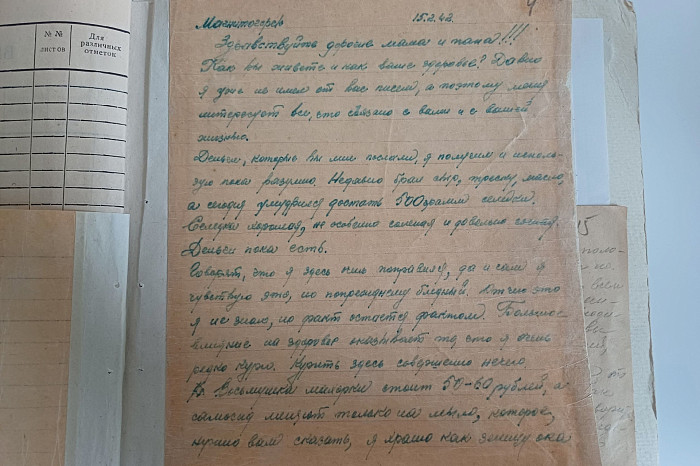 №№
листов
Для
различных
отметок
4
Магнитогорск 15.2.42.
Здравствуйте дорогие мама и папа!!!
Как вы живете и как ваше здоровье? Давно
я уже не имел от вас писем, а поэтому меня
интересует все, что связано с вами и с вашей
жизнью.
Деньги, которые вы мне послали, я получил и исполь-
зую пока разумно. Недавно брал сыр, треску, масло,
а сегодня умудрился достать 500 грамм селедки.
Селедка хорошая, не особенно соленая и довольно
Деньги пока есть.
Говорят, что я здесь поправился, да и сам я
чувствую это, но попрежнему бледный. От чего это
я не знаю, но факт остается фактом. Большое
влияние на здоровье оказывает то, что я очень
редко курю. Курить здесь совершенно нечего.
Восьмушка махорки стоит 50-60 рублей, а
самосад меняют только на мыло, которое,
нужно вам сказать, я храню как зеницу ока
15